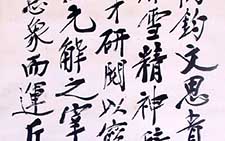 陶鈞文思貴
雪精神
才研閱以窮
元解之宰
意象而運斤